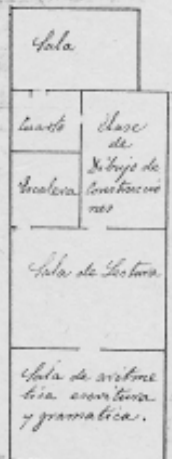 Sala
Cuarto
Escalera
Clase
de
Dibujo de
Construccio
nes
Sala de Lectura
Sala de aritme
tica escritura
y gramatica.